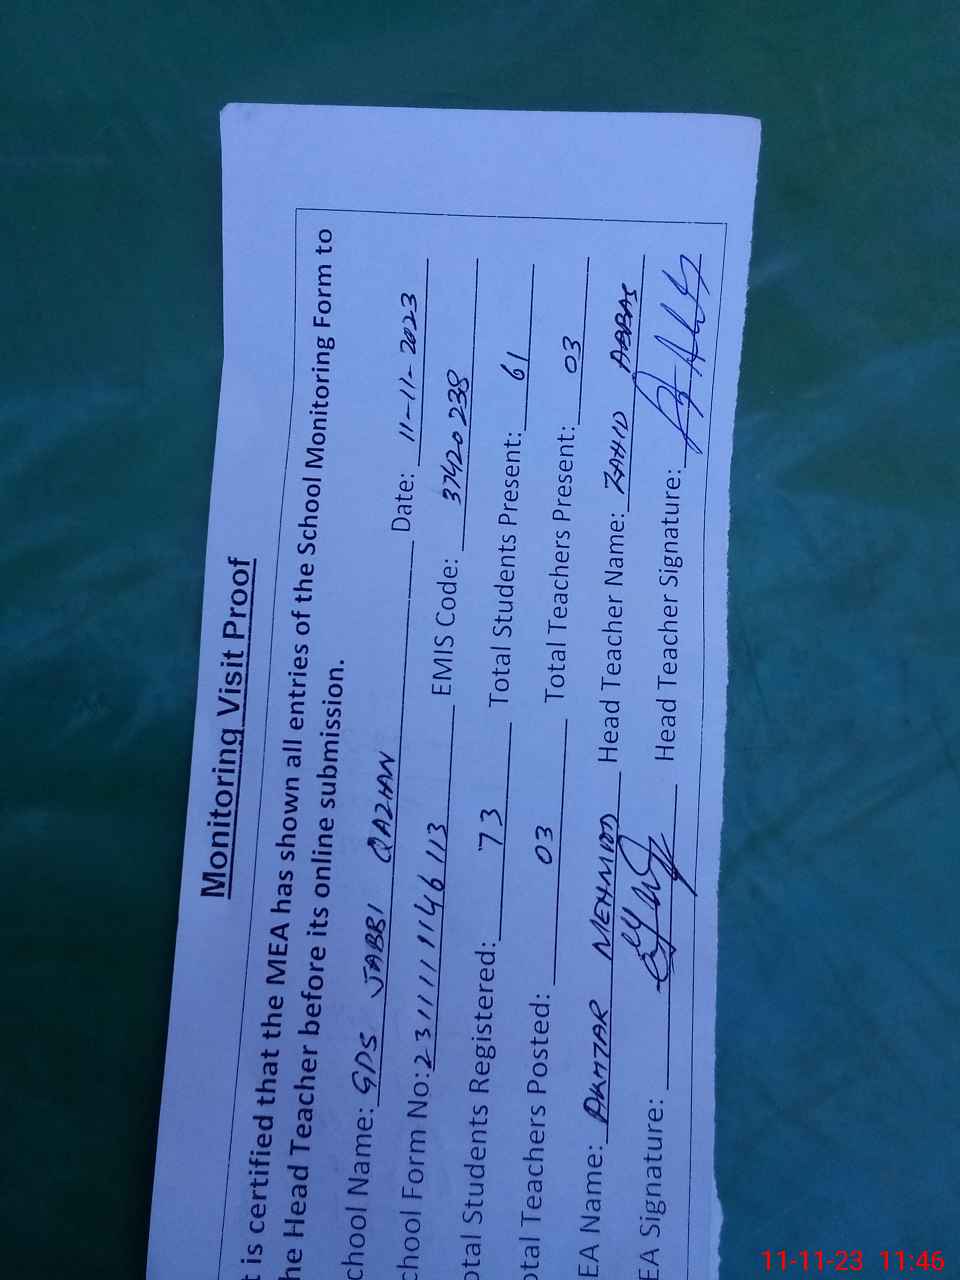 Monitoring Visit Proof
t is certified that the MEA has shown all entries of the School Monitoring Form to
he Head Teacher before its online submission.
chool Name: GPS JABBI QAZIAN Date: 11-11-2023
chool Form No: 231111146113 EMIS Code: 37420238
otal Students Registered: 73 Total Students Present: 61
otal Teachers Posted: 03 Total Teachers Present: 03
EA Name: AKHTAR MEHMOOD Head Teacher Name: ZAHID ABBAS
EA Signature: Head Teacher Signature:
11-11-23 11:46